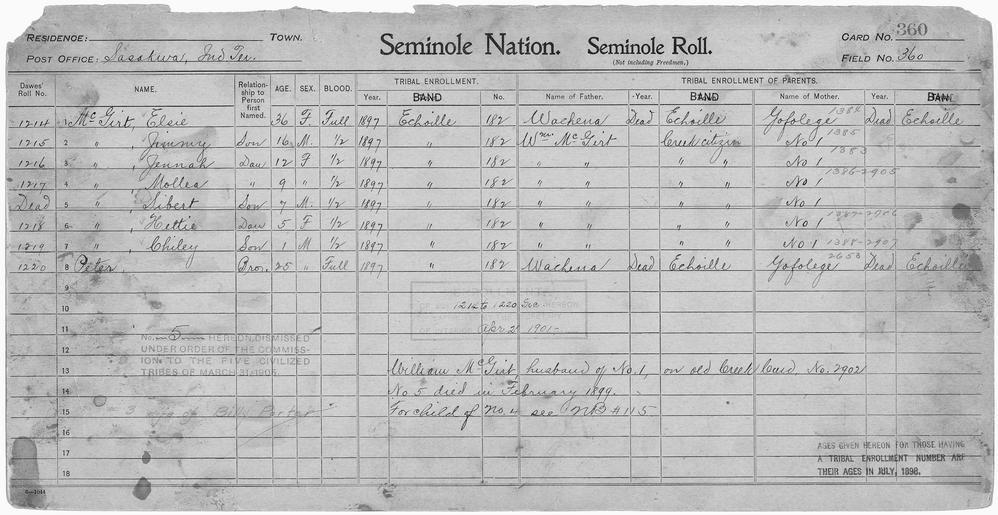 RESIDENCE: TOWN. Seminole Nation. Seminole Roll. CARD NO. 360
POST OFFICE: Sasakwa, Ind Ter. (Not including Freedmen.) FIELD NO. 360
TRIBAL ENROLLMENT. TRIBAL ENROLLMENT OF PARENTS.
Dawes' Roll No. NAME. Relationship to Person first Named. AGE. SEX. BLOOD. Year. BAND No. Name of Father. Year. BAND Name of Mother. Year. BAN.
1214 1 McGirt, Elsie 36 F. Full 1897 Echoille 182 Wachena Dead Echoille Gofolege 1384 Dead Echoille
1215 2 " , Jimmy Son 16 M. 1/2 1897 " 182 Wm McGirt Creek citizen No 1 1385
1216 3 " , Jennah Dau 12 F 1/2 1897 " 182 " " " " No 1 1383
1217 4 " , Mollea " 9 " 1/2 1897 " 182 " " " " No 1 1386-2905
Dead 5 " , Sibert Son 7 M. 1/2 1897 " 182 " " " " No 1
1218 6 " , Hettie Dau 5 F 1/2 1897 " 182 " " " " No 1 1387-2906
1219 7 " , Chiley Son 1 M 1/2 1897 " 182 " " " " No 1 1388-2907
1220 8 Peter, Bro. 25 " Full 1897 " 182 Wachena Dead Echoille Gofolege 2653 Dead Echoille
9
10 1214 to 1220 Inc. HEREON
OF INTERIOR Apr 2 1901
11
No. 5 HEREON, DISMISSED
12 UNDER ORDER OF THE COMMISS-
ION TO THE FIVE CIVILIZED
13 TRIBES OF MARCH 31, 1905. William McGirt, husband of No. 1, on old Creek Card No. 2902
14 No 5 died in February 1899.
15 # 3 of Billy For child of No. 4 see NB # 115
16
17
18
AGES GIVEN HEREON FOR THOSE HAVING
A TRIBAL ENROLLMENT NUMBER ARE
THEIR AGES IN JULY, 1898.